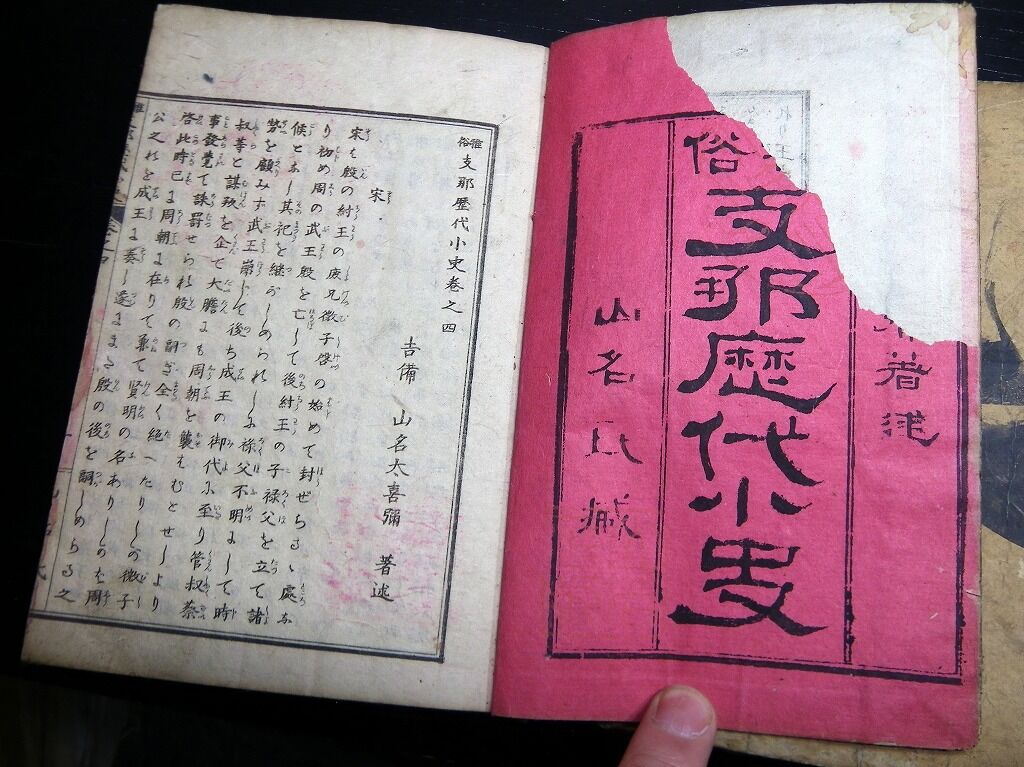 著述
俗支那歴代小史
山名氏蔵
雅俗支那歴代小史卷之四
吉備 山名太喜彌 著述
宋
宋は殷の紂王の庶兄微子啓の始めて封ぜらるゝ處な
り初め周の武王殷を亡して後紂王の子禄父を立て諸
候となし其祀を継がしめられしに禄父不明にして時
勢を顧みす武王崩じて後ち成王の御代に至り管叔蔡
叔等と謀叛を企て大膽にも周朝を襲はむとせしより
事發覺て誅罸せられ殷の嗣ぎ全く絶へたりしの微子
啓此時已に周朝に在りて兼て賢明の名ありしのを周
公之れを成王に奏し遂にまた殷の後を嗣しめらる之